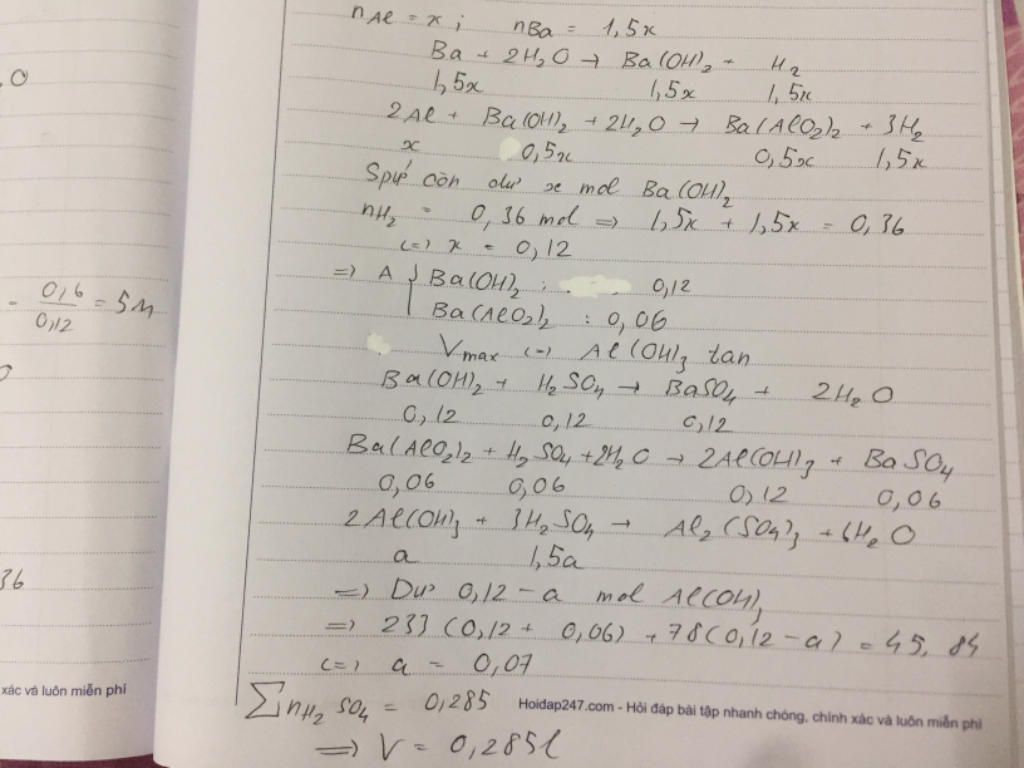 nAl = x ; nBa = 1,5x
Ba + 2H₂O → Ba(OH)₂ + H₂
1,5x 1,5x 1,5x
2Al + Ba(OH)₂ + 2H₂O → Ba(AlO₂)₂ + 3H₂
x 0,5x 0,5x 1,5x
Spứ còn dư x mol Ba(OH)₂
nH₂ = 0,36 mol => 1,5x + 1,5x = 0,36
<=> x = 0,12
=> A { Ba(OH)₂ : 0,12
Ba(AlO₂)₂ : 0,06
Vmax <=> Al(OH)₃ tan
Ba(OH)₂ + H₂SO₄ → BaSO₄ + 2H₂O
0,12 0,12 0,12
Ba(AlO₂)₂ + H₂SO₄ + 2H₂O → 2Al(OH)₃ + BaSO₄
0,06 0,06 0,12 0,06
2Al(OH)₃ + 3H₂SO₄ → Al₂(SO₄)₃ + 6H₂O
a 1,5a
=> Dư 0,12 - a mol Al(OH)₃
=> 233(0,12 + 0,06) + 78(0,12 - a) = 45,84
<=> a = 0,07
∑nH₂SO₄ = 0,285
Hoidap247.com - Hỏi đáp bài tập nhanh chóng, chính xác và luôn miễn phí
=> V = 0,285l
O
= 0,6/0,12 = 5M
36
xác và luôn miễn phí